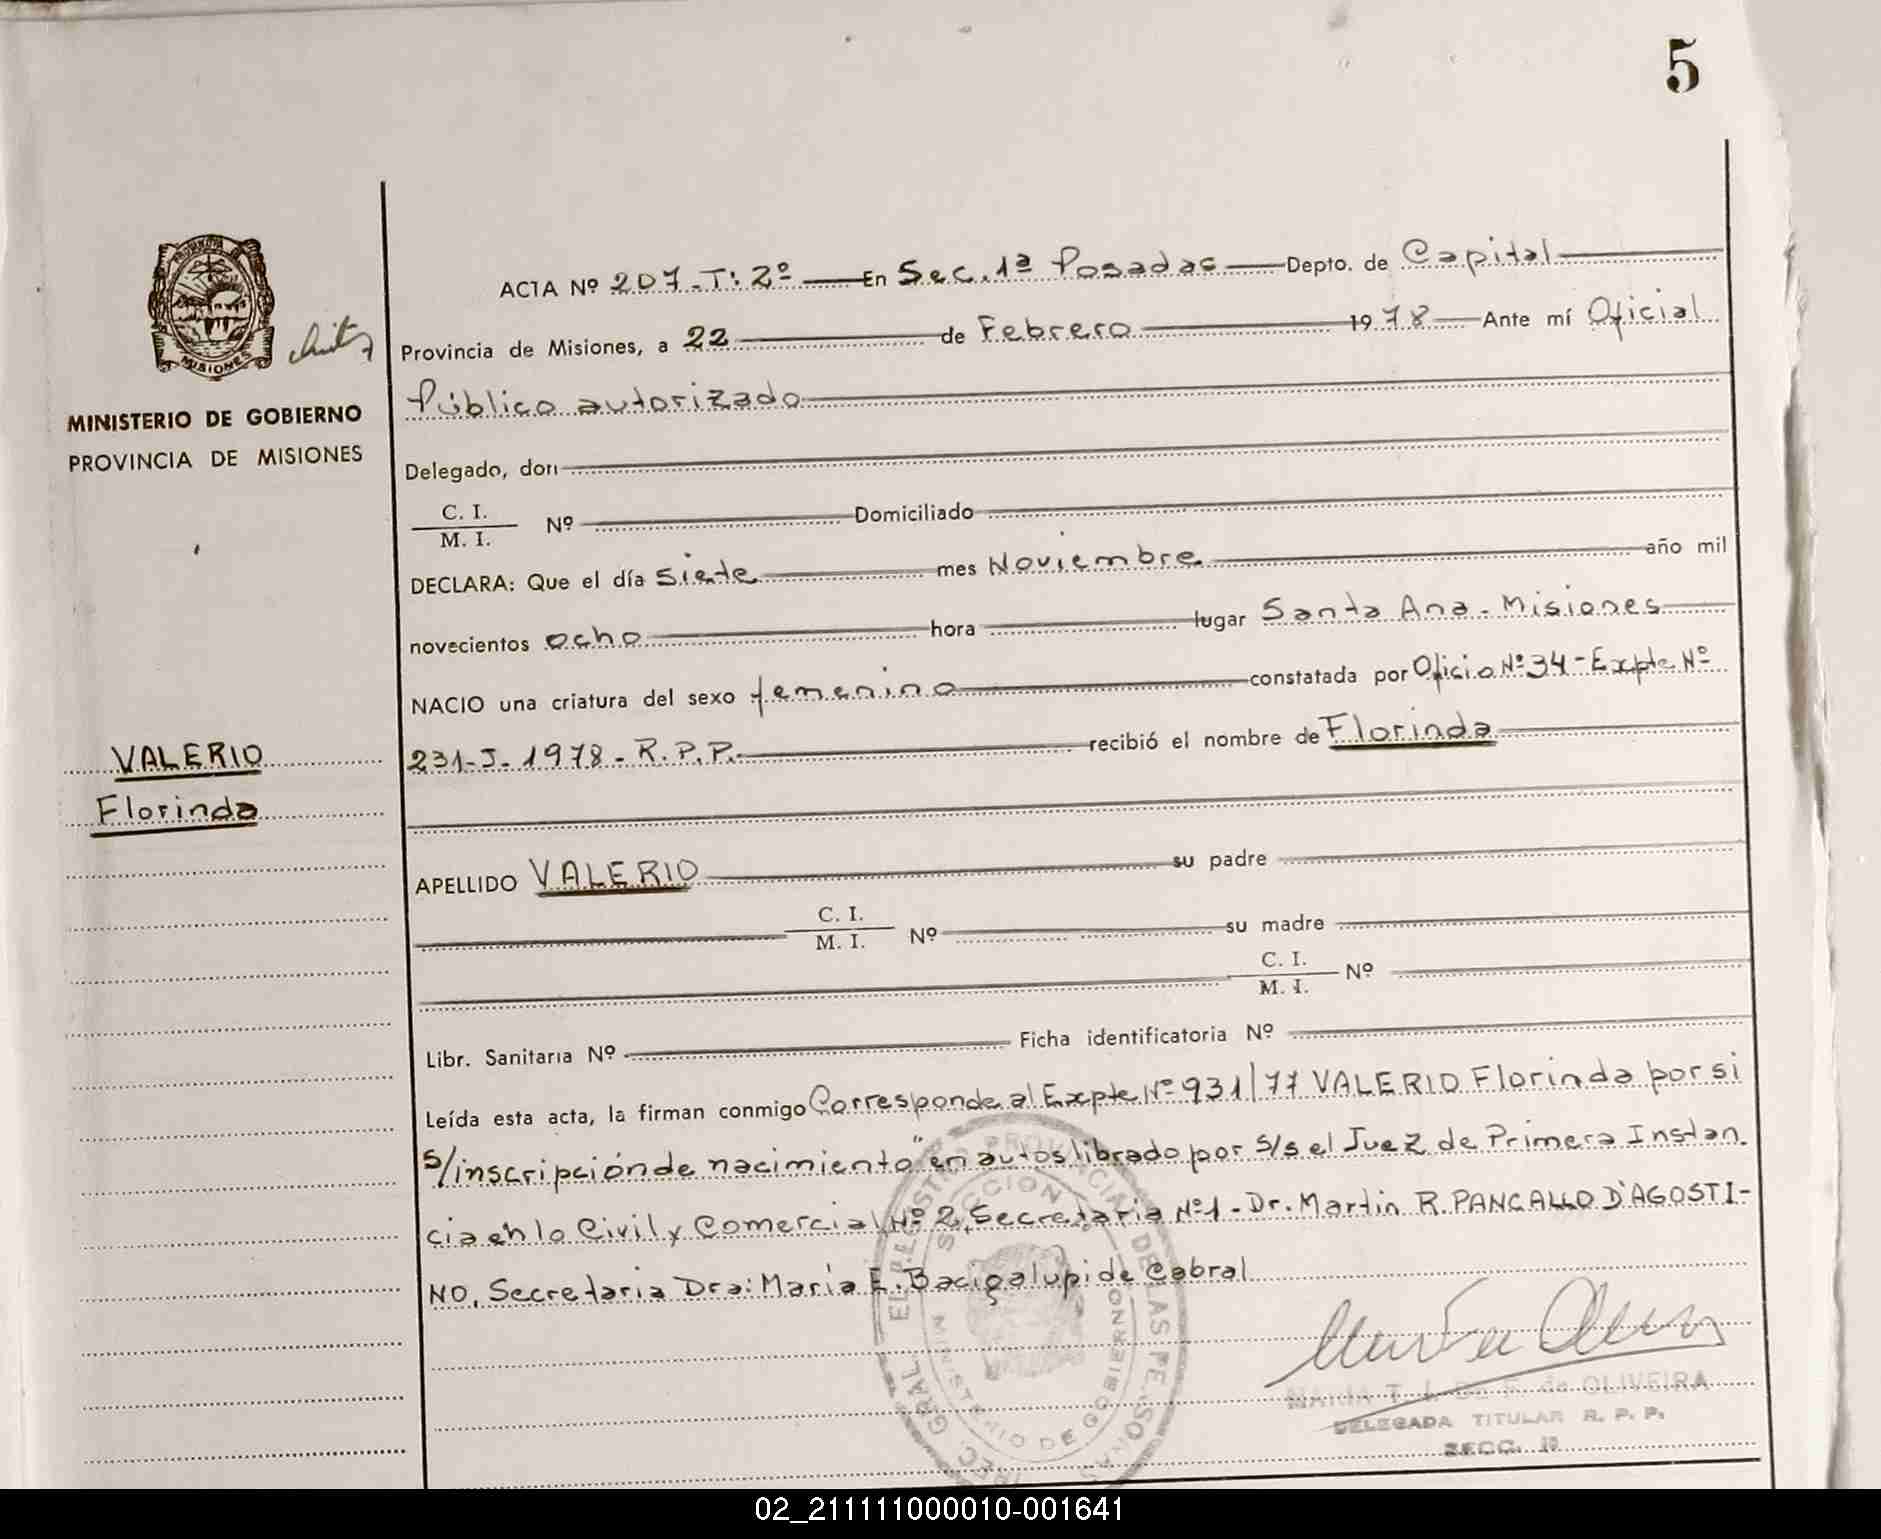 5
PROVINCIA DE
MISIONES
MINISTERIO DE GOBIERNO
PROVINCIA DE MISIONES
VALERIO
Florinda
ACTA Nº 207-T: 2º En Sec. 1ª Posadas Depto. de Capital
Provincia de Misiones, a 22 de Febrero 1978 Ante mí Oficial
Público autorizado
Delegado, don
C. I.
M. I. Nº Domiciliado
DECLARA: Que el día siete mes Noviembre año mil
novecientos ocho hora lugar Santa Ana - Misiones
NACIO una criatura del sexo femenino constatada por Oficio Nº 34 - Expte Nº
231-J-1978-R.P.P. recibió el nombre de Florinda
APELLIDO VALERIO su padre
C. I.
M. I. Nº su madre
C. I.
M. I. Nº
Libr. Sanitaria Nº Ficha identificatoria Nº
Leída esta acta, la firman conmigo Corresponde al Expte Nº 931/77 VALERIO Florinda por si
s/inscripción de nacimiento" en autos librado por S/s el Juez de Primera Instan-
cia en lo Civil y Comercial Nº 2, Secretaria Nº 1 - Dr. Martin R. PANCALLO D'AGOSTI-
NO, Secretaria Dra: María E. Bacigalupi de Cabral
SECCION
MINISTERIO DE GOBIERNO
PROVINCIAL DE LAS PERSONAS
T. J. de OLIVEIRA
DELEGADA TITULAR R. P. P.
SECC.
02_211111000010-001641